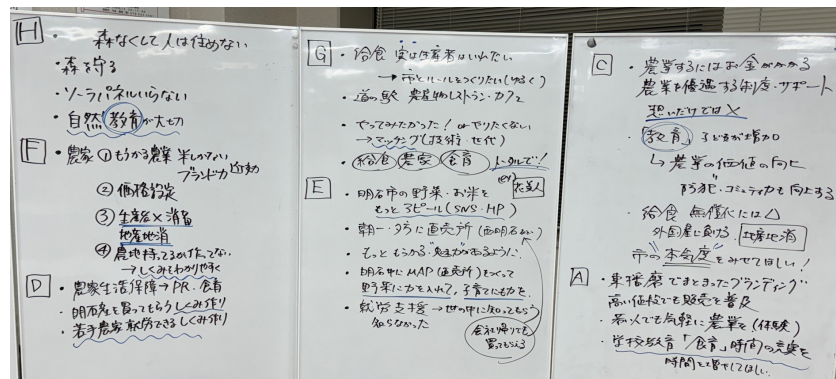 H
森なくして人は住めない
・森を守る
・ソーラパネルいらない
・自然教育が大切
F
・農家 ① もうかる農業 米しかない
ブランド力
② 価格設定
③ 生産者×消費
地産地消
④ 農地持ってるが作ってない
→しくみをわかりやすく
D
・農家生活保障→PR、食育
・明石産を買ってもらうしくみ作り
・若手農家就労できるしくみ作り
G
・給食 実は生産者はいれたい
→市とルールをつくりたい(ゆるく)
・道の駅 農産物レストラン・カフェ
・やってみたかった! orやりたくない
→マッチング(技術、世代)
給食 農家 食育 トータルで!
E
・明石市の野菜・お米を
もっとアピール(SNS・HP)
・朝一・夕方に直売所(西明石
・もっともうかる"魅力"があるように
・明石中にMAP(直売所)をつくって
野菜に力を入れて、子育てにも力を
・就労支援→世の中に知ってもらう
知らなかった
会社帰りでも
買ってもらえる
C
・農業するにはお金がかかる
農業を優遇する制度・サポート
想いだけでは×
・「教育」子どもが増加
↳農業の価値の向上
防犯・コミュティ力も向上する
・給食 無償化には△
外国産に負ける。地産地消
市の"本気度"をみせてほしい!
A
・東播磨でまとまったブランディング
高い価格でも販売を普及
・若い人でも気軽に農業を(体験)
・学校教育「食育」時間の充実を
時間を増やしてほしい